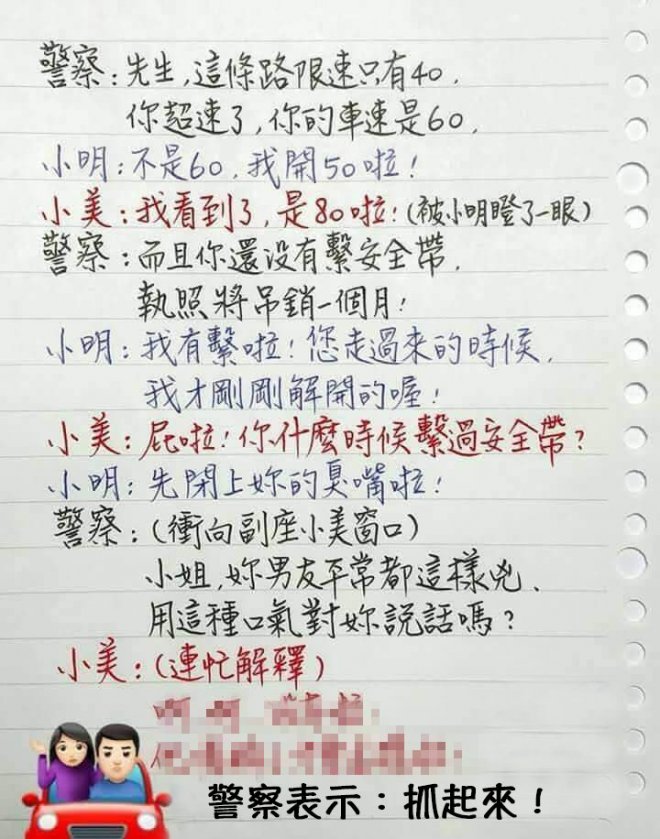 警察：先生，這條路限速只有40，
你超速了，你的車速是60，
小明：不是60，我開50啦！
小美：我看到了，是80啦！（被小明瞪了一眼）
警察：而且你還没有繫安全帶，
執照將吊銷一個月！
小明：我有繫啦！您走過來的時候，
我才剛剛解開的喔！
小美：屁啦！你什麼時候繫過安全帶？
小明：先閉上妳的臭嘴啦！
警察：（衝向副座小美窗口）
小姐，妳男友平常都這樣兇、
用這種口氣對妳說話嗎？
小美：（連忙解釋）
警察表示：抓起來！